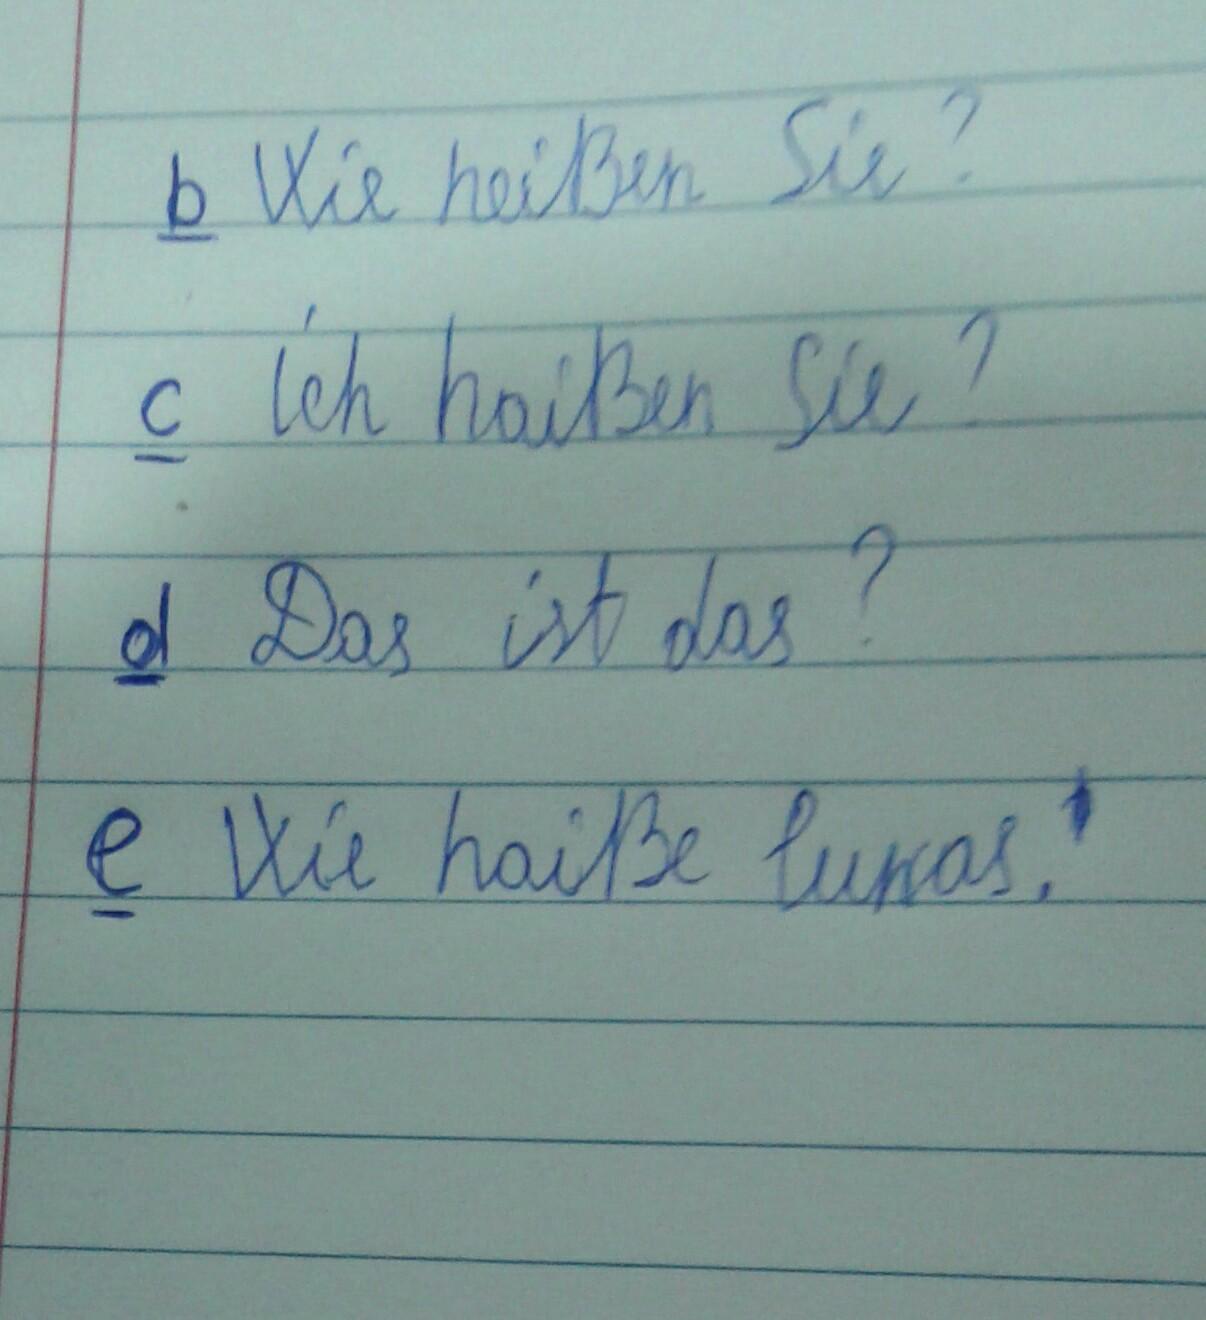 b Wie heißen Sie?
c ich haißen Sie?
d Das ist das?
e Wie haiße lukas.!